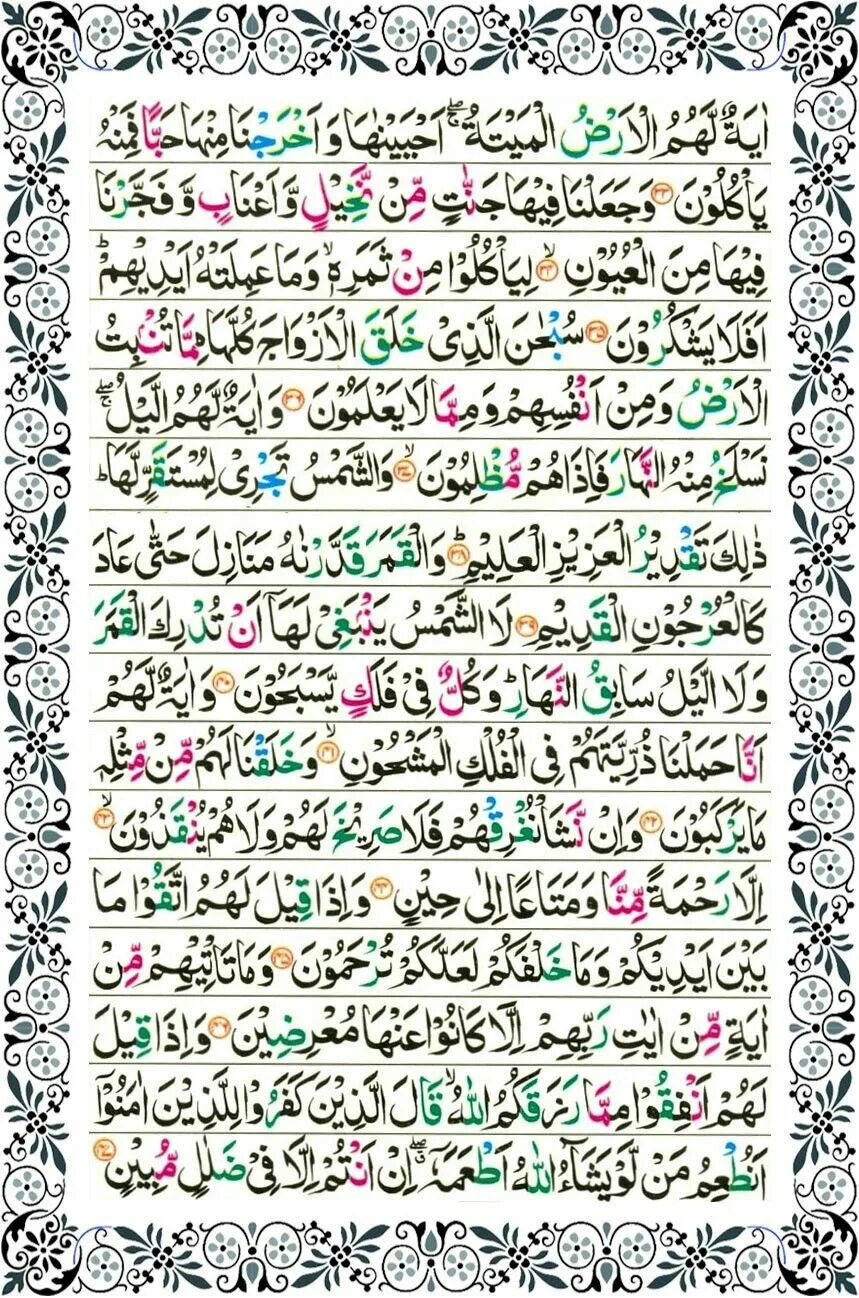 اٰيَةٌ لَّهُمُ الْاَرْضُ الْمَيْتَةُ ۖۚ اَحْيَيْنٰهَا وَ اَخْرَجْنَا مِنْهَا حَبًّا فَمِنْهُ
يَاْكُلُوْنَ ﴿۳۳﴾ وَ جَعَلْنَا فِيْهَا جَنّٰتٍ مِّنْ نَّخِيْلٍ وَّ اَعْنَابٍ وَّ فَجَّرْنَا
فِيْهَا مِنَ الْعُيُوْنِ ﴿۳۴﴾ۙ لِيَاْكُلُوْا مِنْ ثَمَرِهٖ ۙ وَ مَا عَمِلَتْهُ اَيْدِيْهِمْ ؕ
اَفَلَا يَشْكُرُوْنَ ﴿۳۵﴾ سُبْحٰنَ الَّذِىْ خَلَقَ الْاَزْوَاجَ كُلَّهَا مِمَّا تُنْۢبِتُ
الْاَرْضُ وَ مِنْ اَنْفُسِهِمْ وَ مِمَّا لَا يَعْلَمُوْنَ ﴿۳۶﴾ وَ اٰيَةٌ لَّهُمُ الَّيْلُ ۖۚ
نَسْلَخُ مِنْهُ النَّهَارَ فَاِذَا هُمْ مُّظْلِمُوْنَ ﴿۳۷﴾ۙ وَ الشَّمْسُ تَجْرِىْ لِمُسْتَقَرٍّ لَّهَا ؕ
ذٰلِكَ تَقْدِيْرُ الْعَزِيْزِ الْعَلِيْمِ ﴿۳۸﴾ؕ وَ الْقَمَرَ قَدَّرْنٰهُ مَنَازِلَ حَتّٰى عَادَ
كَالْعُرْجُوْنِ الْقَدِيْمِ ﴿۳۹﴾ لَا الشَّمْسُ يَنْۢبَغِىْ لَهَاۤ اَنْ تُدْرِكَ الْقَمَرَ
وَ لَا الَّيْلُ سَابِقُ النَّهَارِ ؕ وَ كُلٌّ فِىْ فَلَكٍ يَّسْبَحُوْنَ ﴿۴۰﴾ وَ اٰيَةٌ لَّهُمْ
اَنَّا حَمَلْنَا ذُرِّيَّتَهُمْ فِى الْفُلْكِ الْمَشْحُوْنِ ﴿۴۱﴾ۙ وَ خَلَقْنَا لَهُمْ مِّنْ مِّثْلِهٖ
مَا يَرْكَبُوْنَ ﴿۴۲﴾ وَ اِنْ نَّشَاْ نُغْرِقْهُمْ فَلَا صَرِيْخَ لَهُمْ وَ لَا هُمْ يُنْقَذُوْنَ ﴿۴۳﴾ۙ
اِلَّا رَحْمَةً مِّنَّا وَ مَتَاعًا اِلٰى حِيْنٍ ﴿۴۴﴾ وَ اِذَا قِيْلَ لَهُمُ اتَّقُوْا مَا
بَيْنَ اَيْدِيْكُمْ وَ مَا خَلْفَكُمْ لَعَلَّكُمْ تُرْحَمُوْنَ ﴿۴۵﴾ وَ مَا تَاْتِيْهِمْ مِّنْ
اٰيَةٍ مِّنْ اٰيٰتِ رَبِّهِمْ اِلَّا كَانُوْا عَنْهَا مُعْرِضِيْنَ ﴿۴۶﴾ وَ اِذَا قِيْلَ
لَهُمْ اَنْفِقُوْا مِمَّا رَزَقَكُمُ اللّٰهُ ۙ قَالَ الَّذِيْنَ كَفَرُوْا لِلَّذِيْنَ اٰمَنُوْۤا
اَنُطْعِمُ مَنْ لَّوْ يَشَآءُ اللّٰهُ اَطْعَمَهٗۤ ۖ اِنْ اَنْتُمْ اِلَّا فِىْ ضَلٰلٍ مُّبِيْنٍ ﴿۴۷﴾